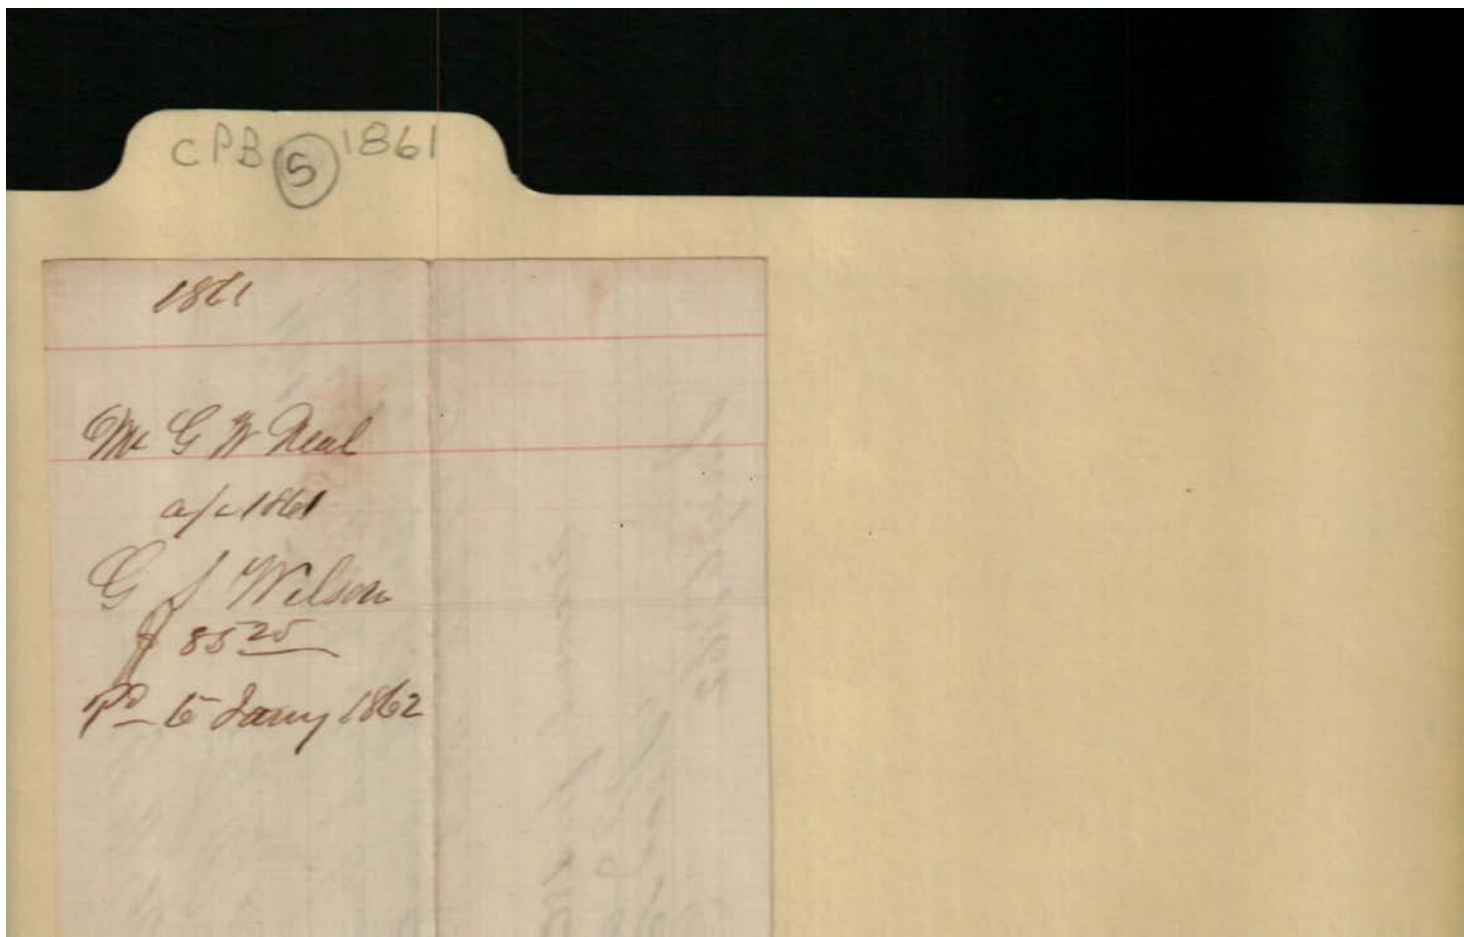 CPB 5 1861
1861
Mr G W Neal
a/c 1861
G J Wilson
$ 85 25
Pd 15 Jany 1862